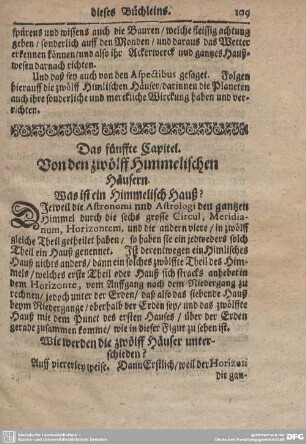 dieses Büchleins. 109
spürens und wissens auch die Bauren / welche fleissig achtung
geben / sonderlich auff den Monden / und daraus das Wetter
erkennen können / und also ihr Ackerwerck und gantzes Hauß-
wesen darnach richten.
Und daß sey auch von den Aspectibus gesaget. Folgen
hierauff die zwölff Himlischen Häuser / darinnen die Planeten
auch ihre sonderliche und merckliche Wirckung haben und ver-
richten.
Das fünffte Capitel.
Von den zwölff Himmelischen
Häusern.
Was ist ein Himmelisch Hauß?
DIeweil die Astronomi und Astrologi den gantzen
Himmel durch die sechs grosse Circul, Meridia-
num, Horizontem, und die andern viere / in zwölff
gleiche Theil getheilet haben / so haben sie ein jedweders solch
Theil ein Hauß genennet. Ist derentwegen ein Himlisches
Hauß nichts anders / dann ein solches zwölffte Theil des Him-
mels / welches erste Theil oder Hauß sich stracks anhebet in
dem Horizonte, vom Auffgang nach dem Niedergang zu
rechnen / jedoch unter der Erden / daß also das siebende Hauß
beym Niedergange / oberhalb der Erden sey / und das zwölffte
Hauß mit dem Punct des ersten Hauses / über der Erden
gerade zusammen komme / wie in dieser Figur zu sehen ist.
Wie werden die zwölff Häuser unter-
schieden?
Auff viererley weise. Dann Erstlich / weil der Horizon
die gan-